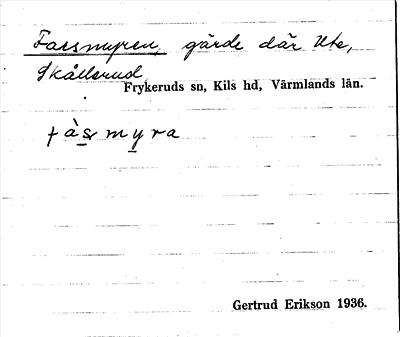 Faesmyren, gärde där Ute,
Skållerud
Frykeruds sn, Kils hd, Värmlands län.
Gertrud Erikson 1936.